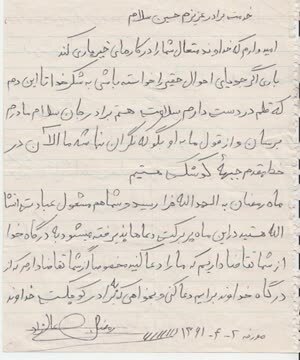 خدمت برادر عزیزم حسین سلام
امیدوارم که خداوند متعال شما را در کارهای خیر یاری کند
باری اگر جویای احوال حقیر را خواسته باشی به شکر خدا تا این دم
که قلم در دست دارم سلامت هستم برادر جان سلام مادرم
برسان و از قول ما به او بگو که نگران نباشد ما الآن در
خط مقدم جبهه کوشک هستیم
ماه رمضان به الحمدالله فرا رسید و شما هم مشغول عبادت انشا
الله هستید در این ماه پر برکت دعاها پذیرفته میشود به درگاه خدا
از شما تقاضا داریم که ما را دعا کنید خصوصا از شما تقاضا دارم که از
درگاه خداوند برایم دعا کنی و بخواهی که برادر کوچکت خداوند
مورخه ۲-۴-۱۳۶۱ رمضان